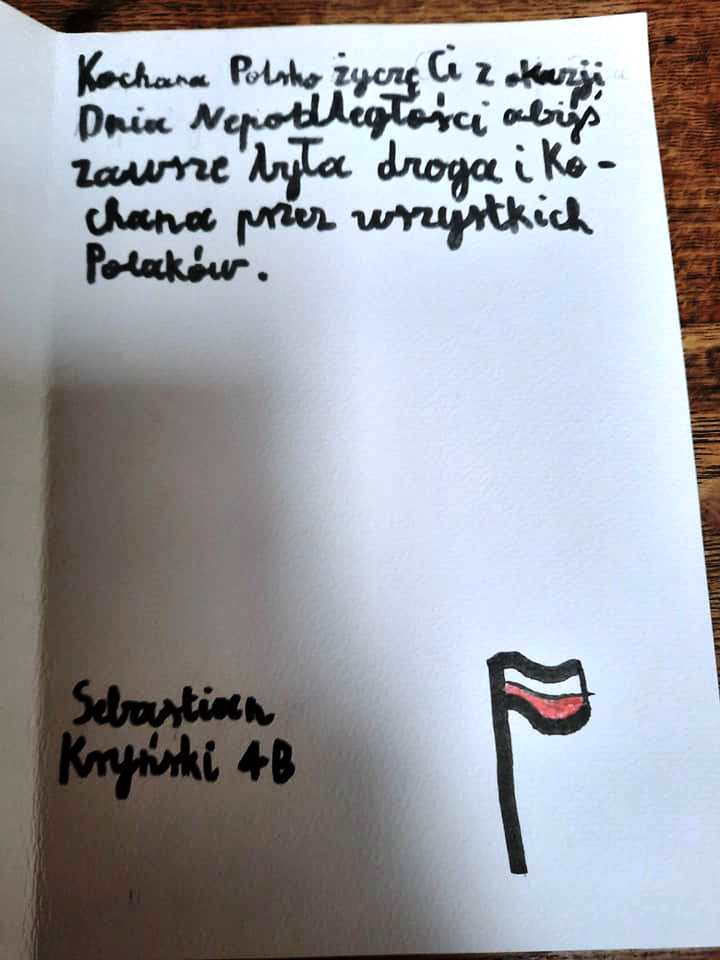 Kochana Polsko życzę Ci z okazji
Dnia Niepodległości abyś
zawsze była droga i Ko-
chana przez wszystkich
Polaków.
Sebastian
Kryński 4B